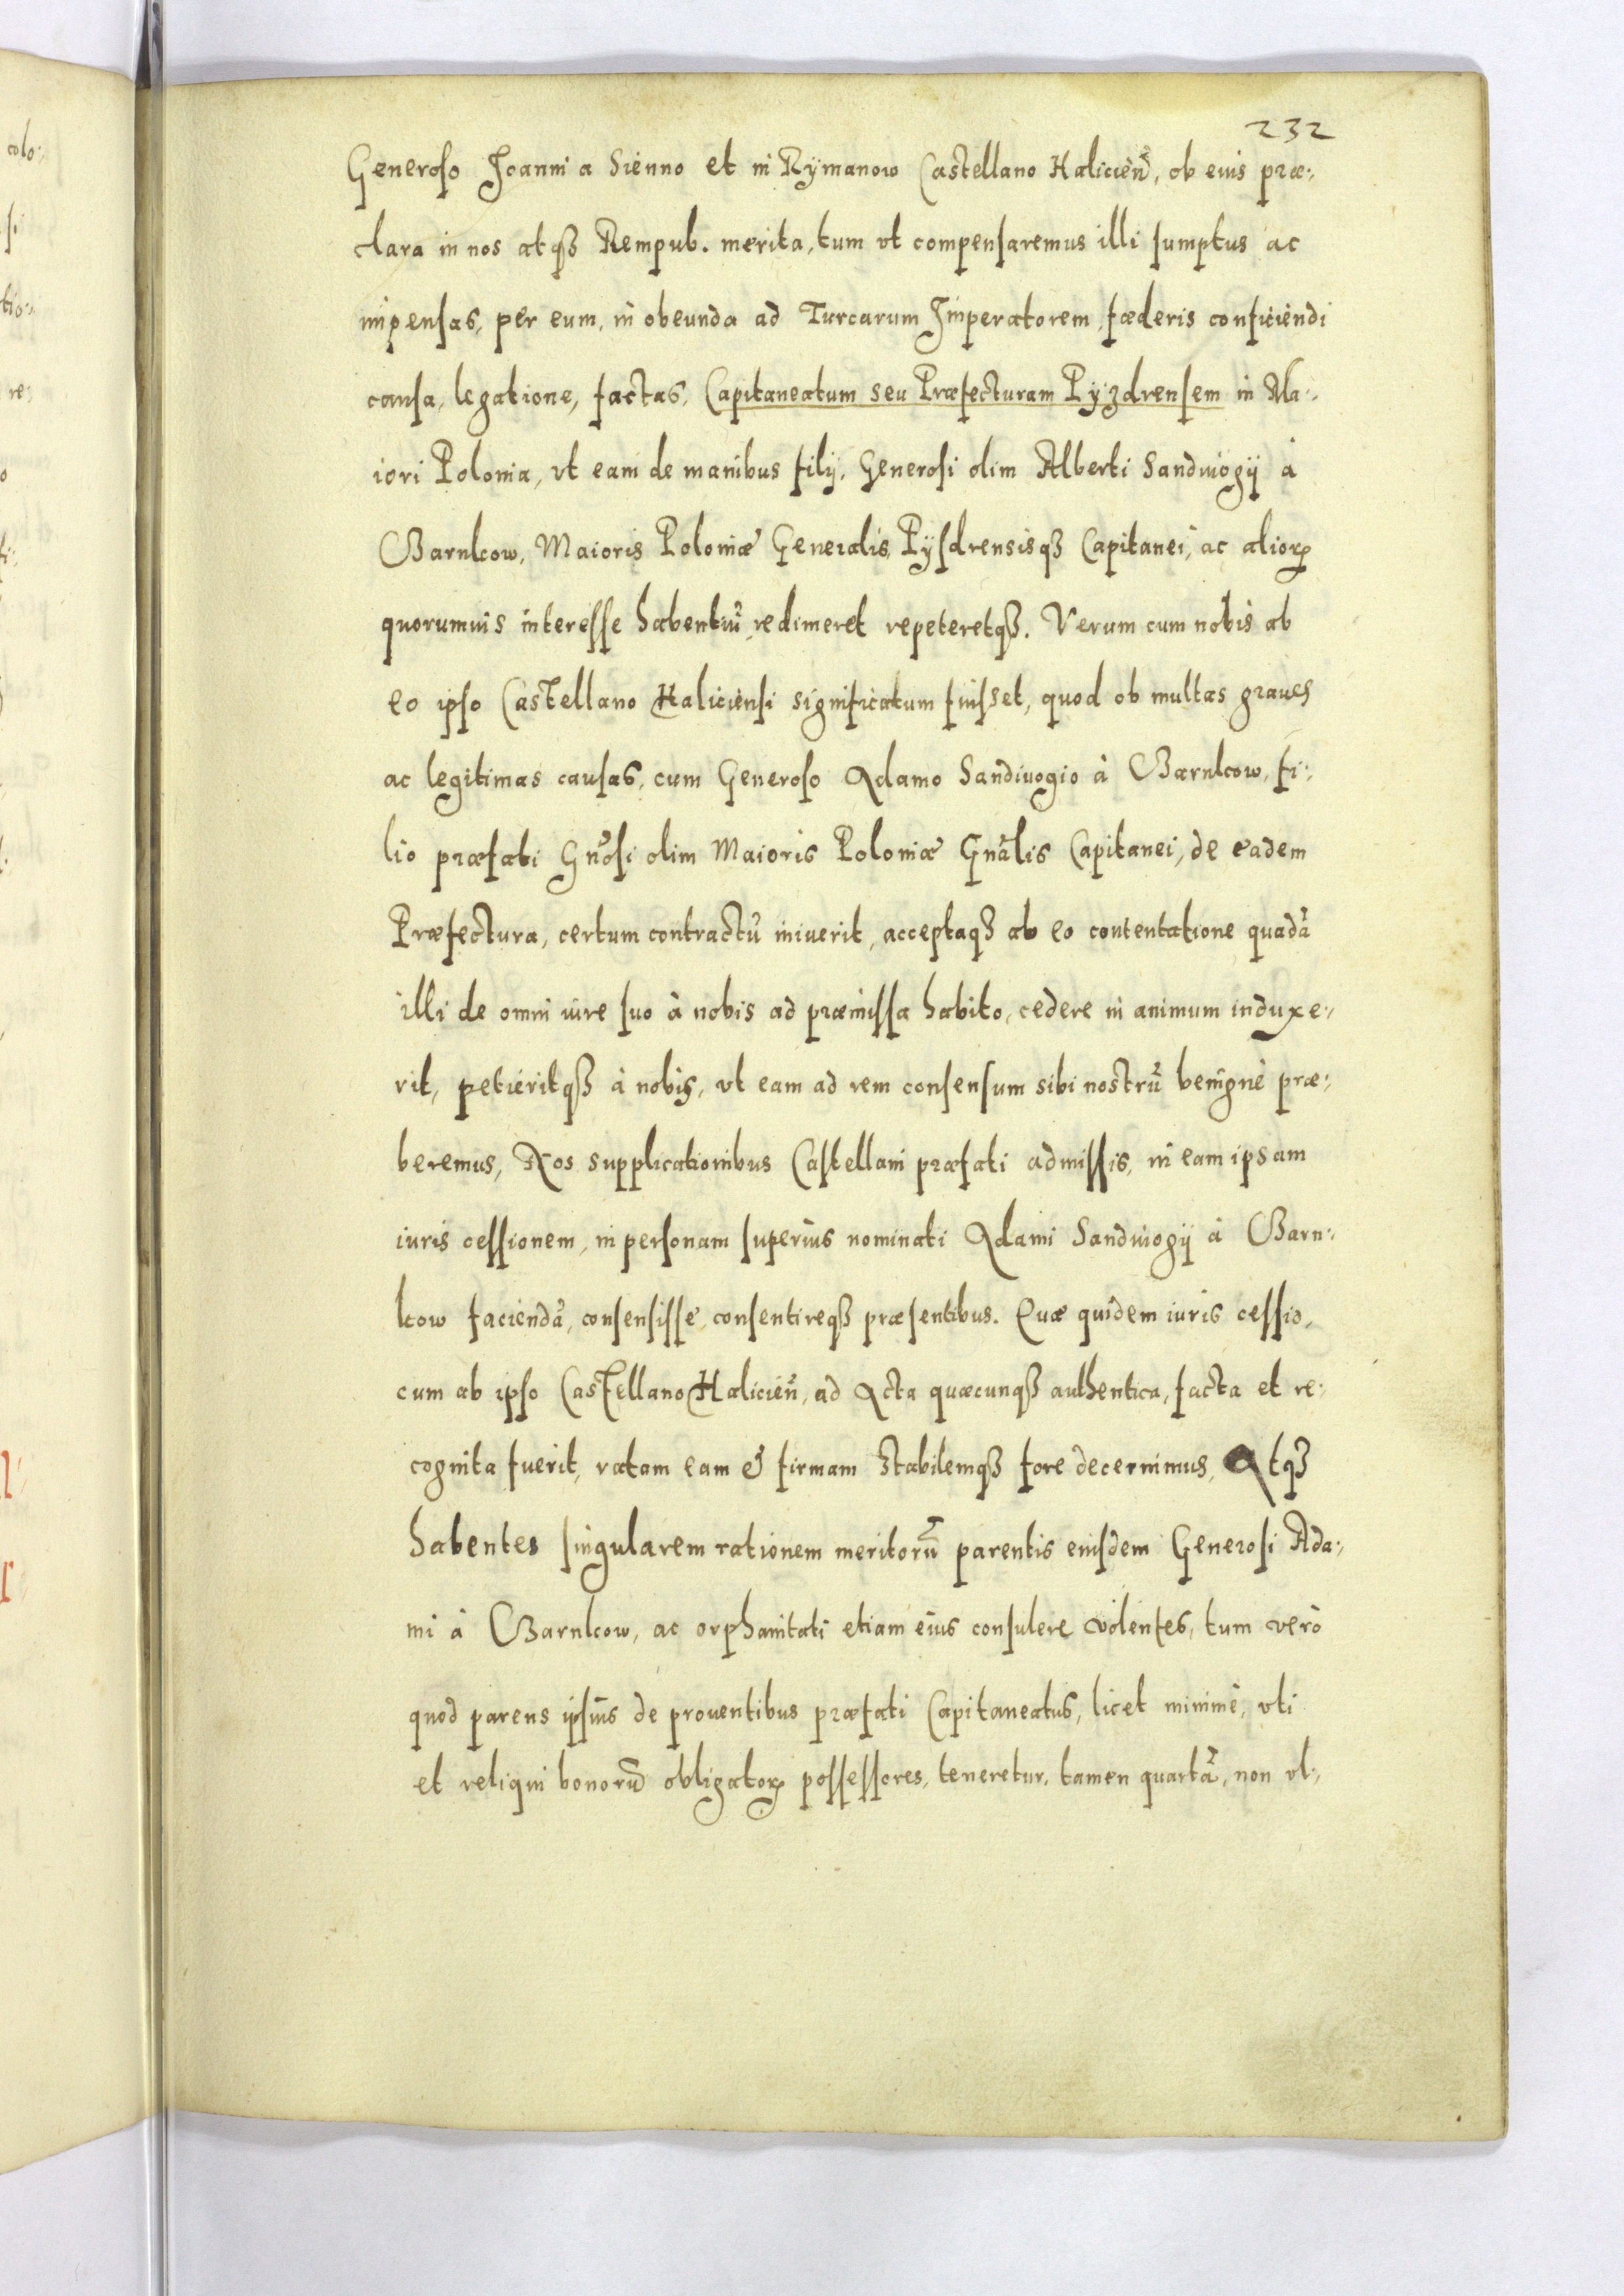 232
Generoso Joanni a Sienno et in Rÿmanow Castellano Halicieñ, ob eius præ:
clara in nos atqȝ Rempub. merita, tum vt compensaremus illi sumptus ac
impensas, per eum, in obeunda ad Turcarum Imperatorem, fæderis conficiendi
causa, legatione, factas, Capitaneatum seu Præfecturam Pÿzdrensem in Ma:
iori Polonia, vt eam de manibus filij, Generosi olim Alberti Sandiuogij à
Czarnkow, Maioris Poloniæ Generalis, Pÿsdrensisqȝ Capitanei, ac alioꝝ
quorumuis interesse habentiũ, redimeret repeteretqȝ. Verum cum nobis ab
eo ipso Castellano Haliciensi significatum fuisset, quod ob multas graues
ac legitimas causas, cum Generoso Adamo Sandiuogio à Czarnkow, fi:
lio præfati Gñosi olim Maioris Poloniæ Gñalis Capitanei, de eadem
Præfectura, certum contractũ iniuerit, acceptaqȝ ab eo contentatione quadã
illi de omni iure suo à nobis ad præmissa habito, cedere in animum induxe:
rit, petieritqȝ à nobis, vt eam ad rem consensum sibi nostrũ benignè præ:
beremus, Nos supplicationibus Castellani præfati admissis, in eam ipsam
iuris cessionem, in personam superius nominati Adami Sandiuogij à Czarn:
kow faciendã, consensisse, consentireqȝ præsentibus. Quæ quidem iuris cessio,
cum ab ipso Castellano Halicieñ, ad Acta quæcunqȝ authentica, facta et re:
cognita fuerit, ratam eam & firmam stabilemqȝ fore decernimus, Atqȝ
habentes singularem rationem meritorũ parentis eiusdem Generosi Ada:
mi à Czarnkow, ac orphanitati etiam eius consulere volentes, tum verò
quod parens ipsius de prouentibus præfati Capitaneatus, licet minimè, vti
et reliqui bonorũ obligatoꝝ possessores, teneretur, tamen quartã, non vl: